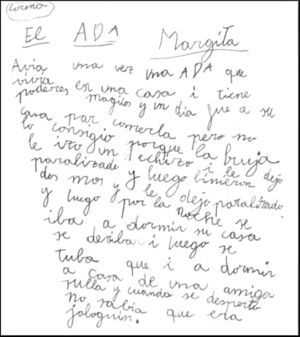 Lorena
El ADA Margita
Avia una vez una ADA que
vivia en una casa i tiene
poderes magicos y un dia fue a su
casa par comerla pero no
lo consigio porque la bruja
le izo un echizo i le dejo
paralizado y luego binieron
dos mos y le dejo paralizado
y luego por la noche se
iba a dormir su casa
se deriba i luego se
tubo que i a dormir
a casa de una amiga
sulla y cuando se desperto
no sabia que era
jaloguin.